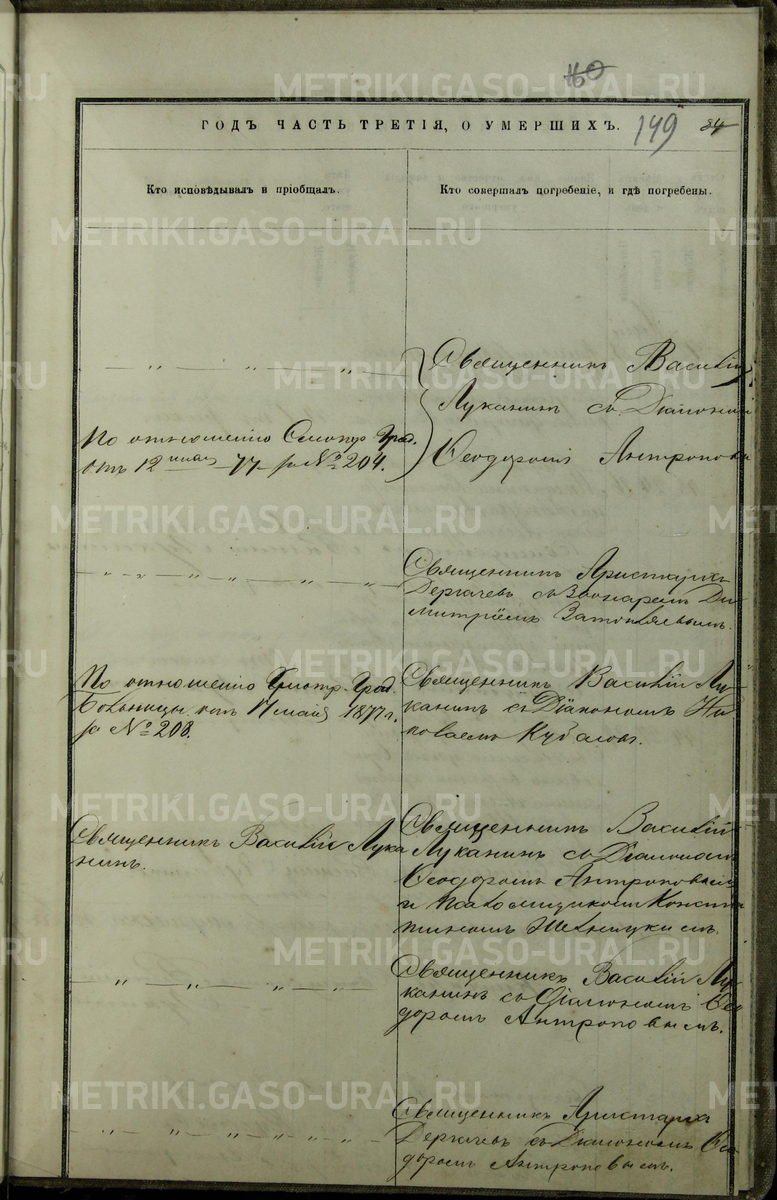 160
149 84
ГОДЪ ЧАСТЬ ТРЕТІЯ, О УМЕРШИХЪ.
Кто исповѣдывалъ и пріобщалъ.
Кто совершалъ погребеніе, и гдѣ погребены.
— „ — „ — „ — „ —
Священникъ Василій
Луканинъ съ Діакономъ
Ѳеодоромъ Антроповы
По отношенію Град.
отъ 12 мая 77 за № 204.
— „ — „ — „ — „ — „ —
Священникъ Аристархъ
Дергачевъ съ Звонаремъ Ди-
митріемъ
По отношенію Град.
Больницы отъ 17 мая 1877 г.
за № 208.
Священникъ Василій Лу-
канинъ съ Діакономъ Ни-
колаемъ
Священникъ Василій Лука
нинъ.
Священникъ Василій
Луканинъ съ Діакономъ
Ѳеодоромъ Антроповымъ
и Псаломщикомъ Конста
тиномъ
„ — „ — „ — „ —
Священникъ Василій Лу-
канинъ съ Діакономъ Ѳео
доромъ Антроповымъ.
— „ — „ — „ — „ — „ —
Священникъ Аристархъ
Дергачевъ съ Діакономъ Ѳео
доромъ Антроповымъ.
METRIKI.GASO-URAL.RU